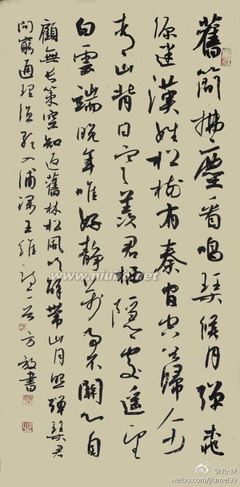 舊簡拂塵看鳴琴候月彈桃
源迷漢姓松樹有秦官空谷歸人少
青山背日寒羨君栖隱處遙望
白雲端晚年唯好靜萬事不關心自
顧無長策空知返舊林松風吹解帶山月照彈琴君
問窮通理漁歌入浦深王維詩二首方放書
weibo.com/jiumei99